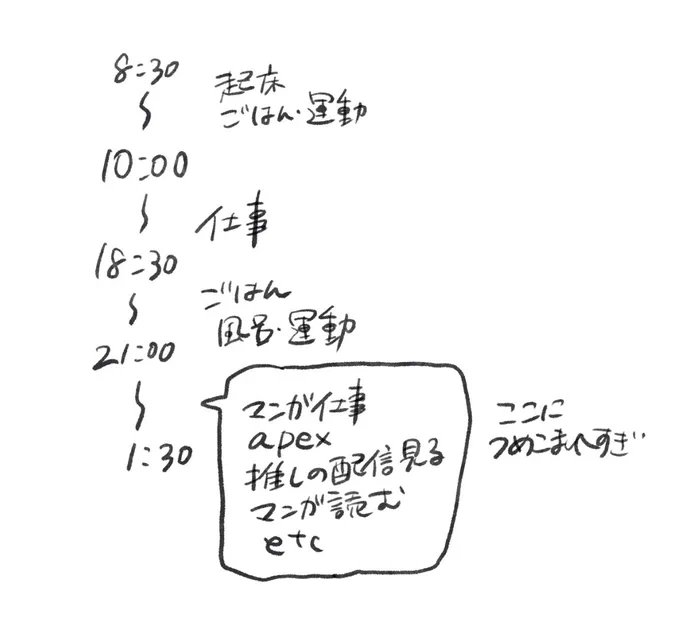 8:30
起床
ごはん・運動
10:00
仕事
18:30
ごはん
風呂・運動
21:00
マンガ仕事
apex
推しの配信見る
マンガ読む
etc
1:30
ここに
つめこまれすぎ